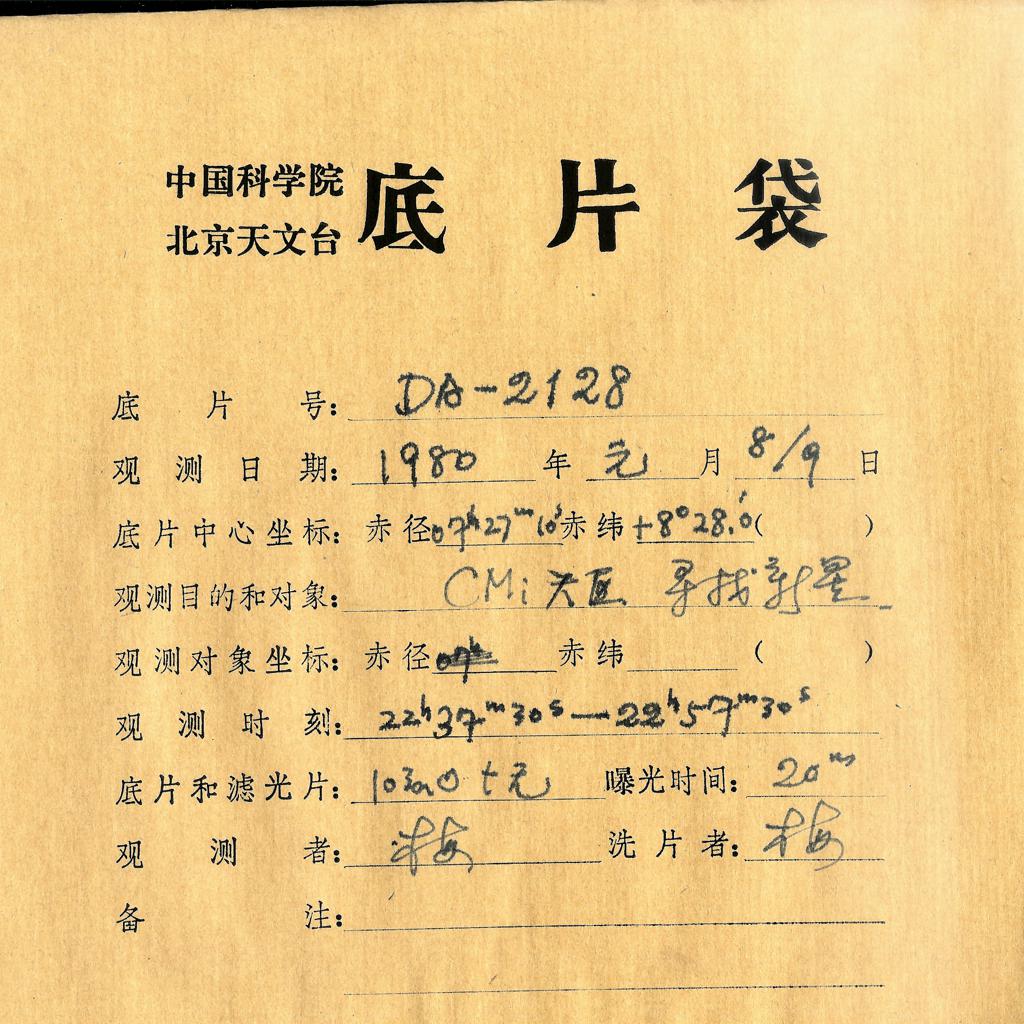 中国科学院
北京天文台
底片袋
底片号: DA-2128
观测日期: 1980 年 元 月 8/9 日
底片中心坐标: 赤径 07ʰ27ᵐ10ˢ 赤纬 +8°28.'0 ( )
观测目的和对象: CMi 天区 寻找新星
观测对象坐标: 赤径 07ʰ 赤纬 ( )
观测时刻: 22ʰ37ᵐ30ˢ—22ʰ57ᵐ30ˢ
底片和滤光片: 103aO+无 曝光时间: 20ᵐ
观测者: 梅 洗片者: 梅
备注: